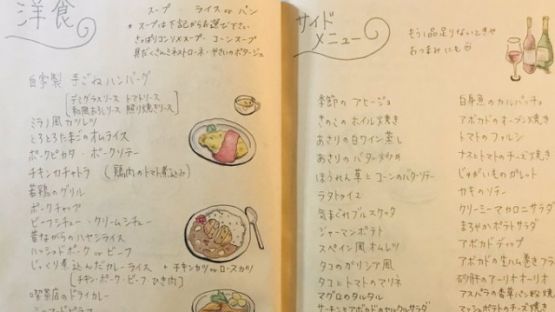 洋食
スープ ライス or パン
* スープは下記からお選び下さい
さっぱりコンソメスープ・コーンスープ
具だくさんミネストローネ・やさいのポタージュ
自家製 手ごねハンバーグ
デミグラスソース トマトソース
和風おろしソース 照り焼きソース
ミラノ風カツレツ
とろとろたまごのオムライス
ポークピカタ・ポークソテー
チキンカチャトラ (鶏肉のトマト煮込み)
若鶏のグリル
ポークチャップ
ビーフシチュー・クリームシチュー
昔ながらのハヤシライス
ハッシュドポーク or ビーフ
じっくり煮込んだカレーライス + チキンカツ or ロースカツ
(チキン・ポーク・ビーフ・ひき肉)
喫茶店のドライカレー
サイドメニュー
もう1品足りないときや
おつまみにも
季節のアヒージョ
きのこのホイル焼き
あさりの白ワイン蒸し
あさりのバター炒め
ほうれん草とコーンのバターソテー
ラタトゥイユ
気まぐれブルスケッタ
ジャーマンポテト
スペイン風オムレツ
タコのガリシア風
タコとトマトのマリネ
マグロのタルタル
サーモンとアボカドの
白身魚のカルパッチョ
アボカドのオーブン焼き
トマトのファルシ
ナスとトマトのチーズ焼き
じゃがいものガレット
カキのソテー
クリーミーマカロニサラダ
まろやかポテトサラダ
アボカドディップ
アボカドの生ハム巻きフラ
砂肝のアーリオオーリオ
アスパラの香草パン粉焼
マッシュポテトのチーズ焼